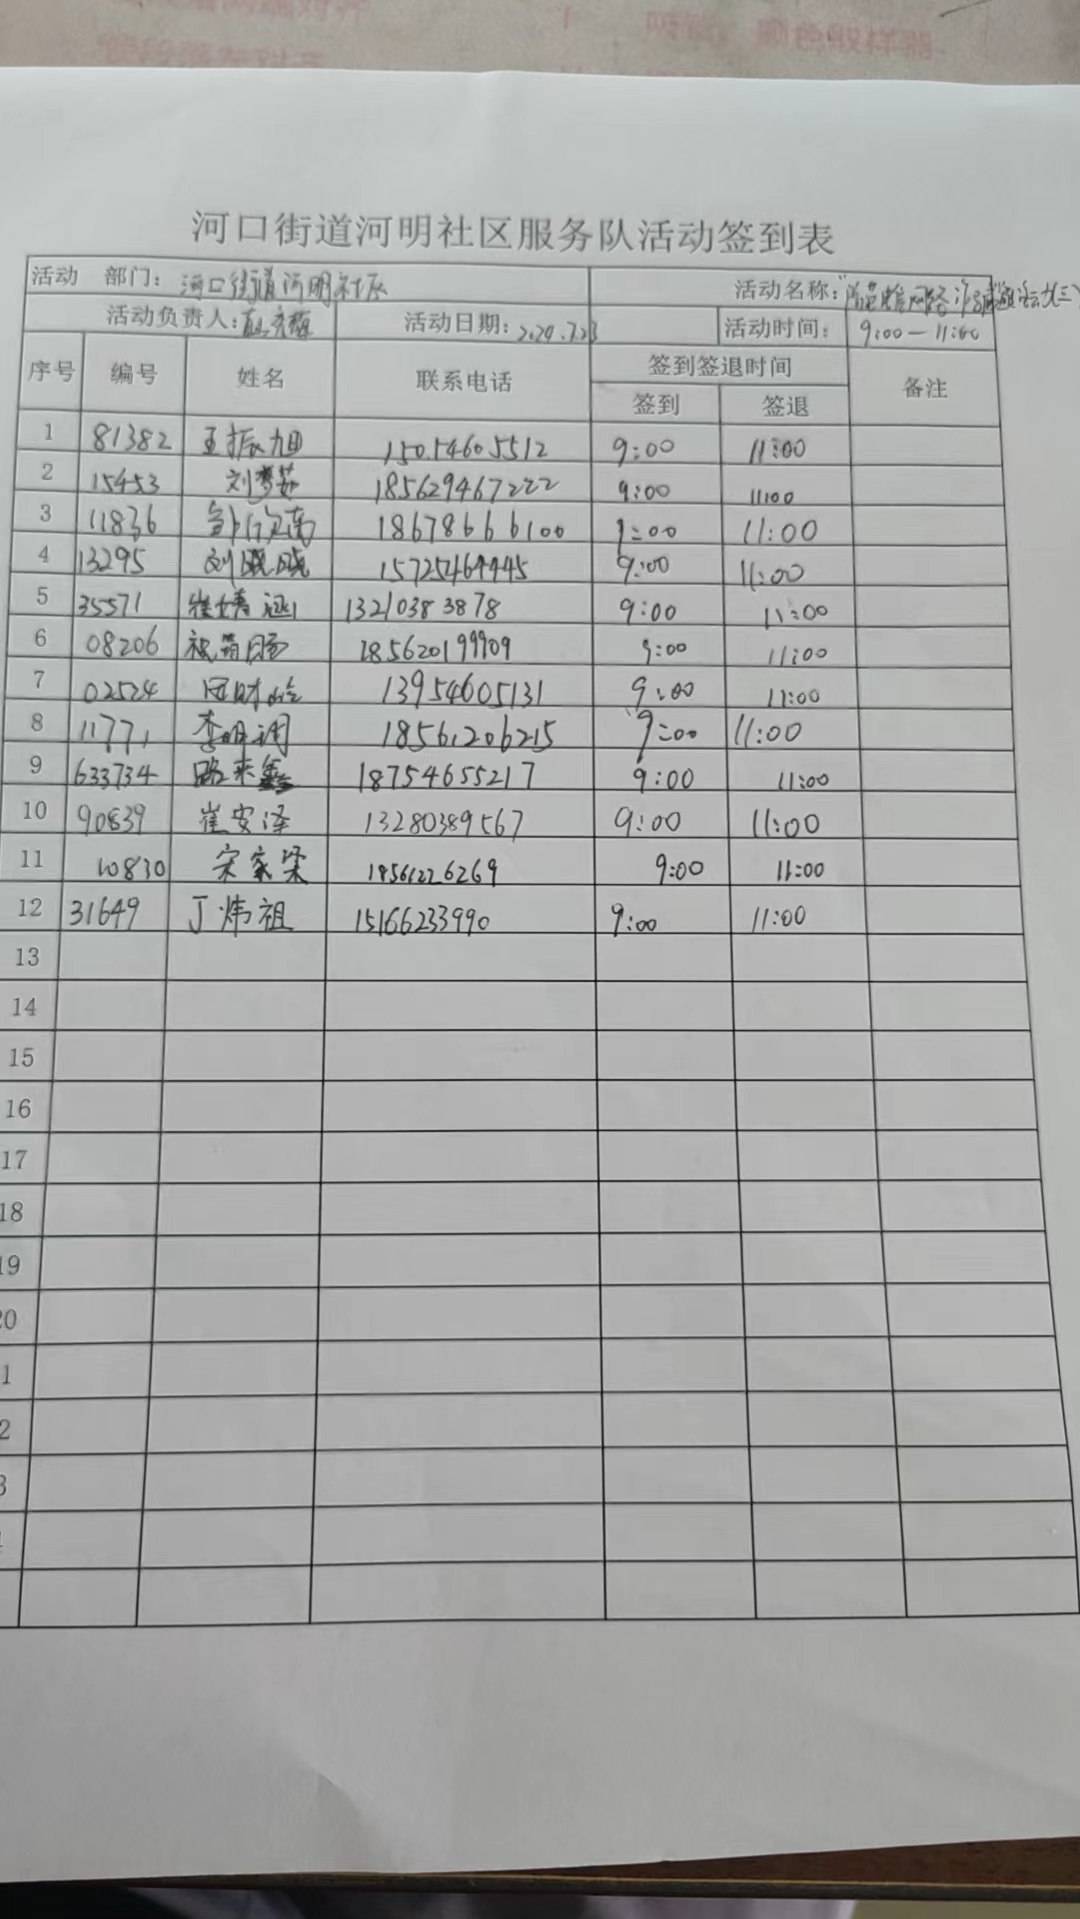 河口街道河明社区服务队活动签到表
活动 部门：河口街道河明社区 活动名称：
活动负责人： 活动日期：2024.7.23 活动时间：9:00—11:00
序号 编号 姓名 联系电话 签到签退时间 备注
签到 签退
1 81382 王振旭 15054605512 9:00 11:00
2 15453 刘梦茹 18562946722 9:00 11:00
3 11836 18678666100 9:00 11:00
4 13295 刘晓晓 15725464445 9:00 11:00
5 35571 崔婧涵 13210383878 9:00 11:00
6 08206 18562019909 9:00 11:00
7 02524 13954605131 9:00 11:00
8 11771 李明润 18561206215 9:00 11:00
9 633734 路来鑫 18754655217 9:00 11:00
10 90839 崔安泽 13280389567 9:00 11:00
11 10830 宋家梁 18561226269 9:00 11:00
12 31649 丁炜祖 15166233990 9:00 11:00
13
14
15
16
17
18
19
20
1
2
3